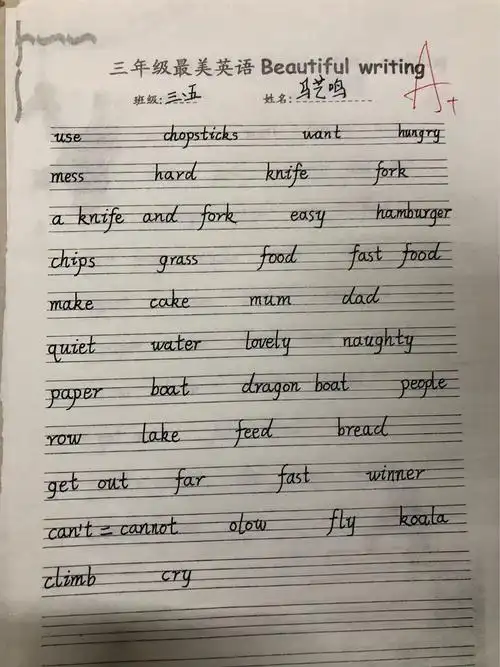 三年级最美英语 Beautiful writing
A+
班级: 三.五 姓名: 马艺鸣
use chopsticks want hungry
mess hard knife fork
a knife and fork easy hamburger
chips grass food fast food
make cake mum dad
quiet water lovely naughty
paper boat dragon boat people
row lake feed bread
get out far fast winner
can't = cannot olow fly koala
climb cry